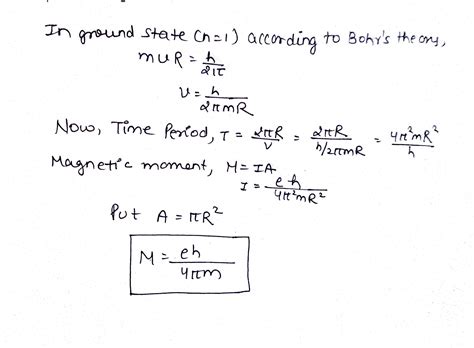 In ground state (n=1) according to Bohr's theory,
mUR = h/2π
v = h/2πmR
Now, Time Period, T = 2πR/v = 2πR/(h/2πmR) = 4π²mR²/h
Magnetic moment, M = IA
I = eh/4π²mR²
Put A = πR²
M = eh/4πm